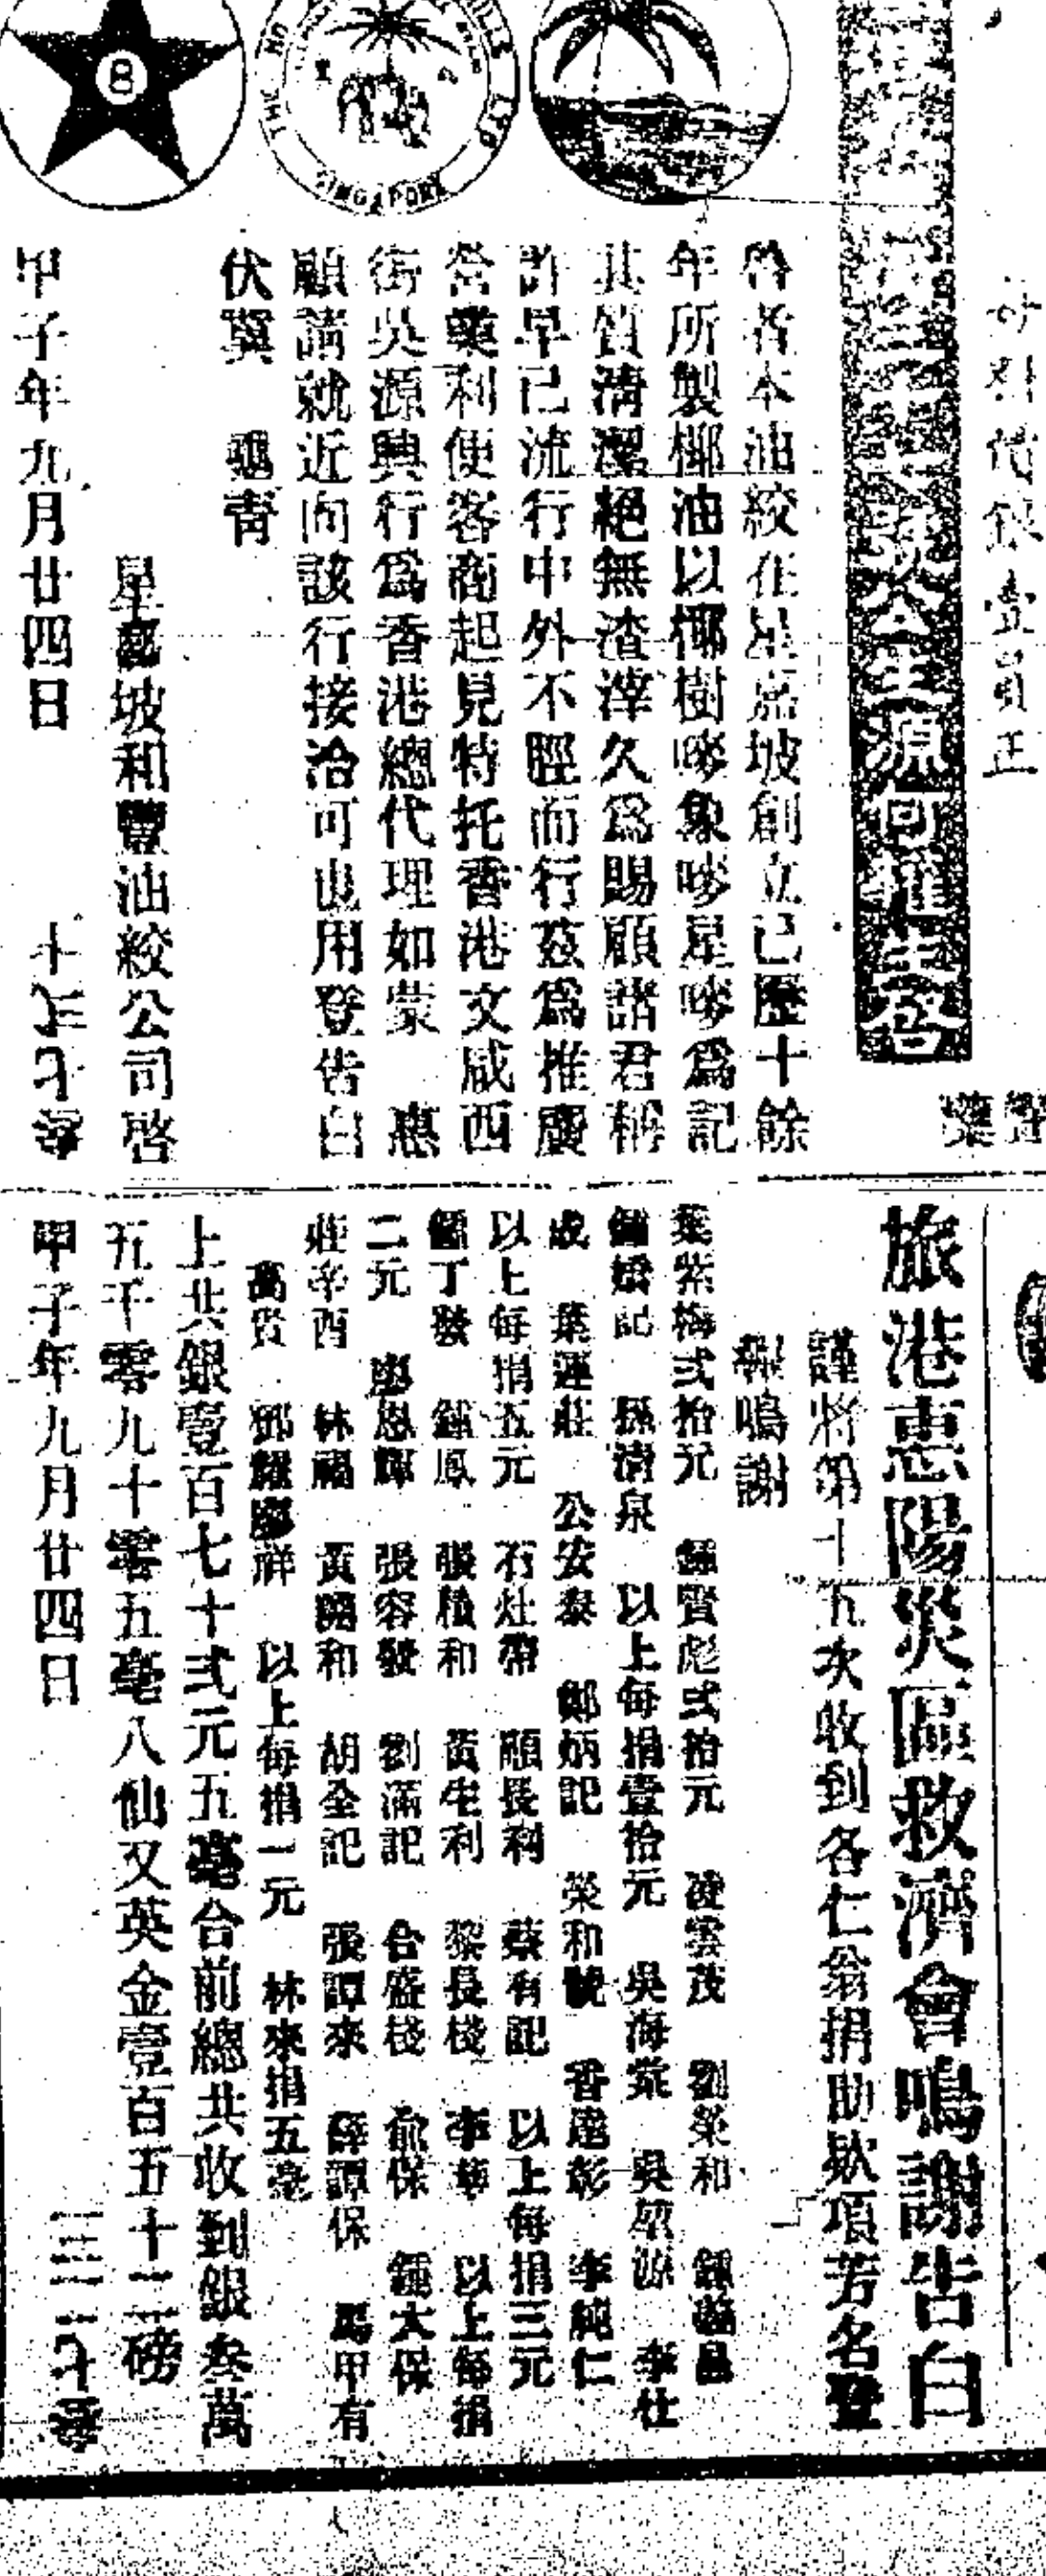 8
SINGAPORE
啓者本油絞在星嘉坡創立已歷十餘
年所製椰油以椰樹嘜象嘜星嘜爲記
其質清潔絕無渣滓久爲賜顧諸君稱
許早已流行中外不脛而行茲爲推廣
營業利便客商起見特托香港文咸西
街吳源興行爲香港總代理如蒙 惠
顧請就近向該行接洽可也用登告白
伏冀
星嘉坡和豐油絞公司啓
甲子年九月廿四日
旅港惠陽災區救濟會鳴謝告白
謹將第十五次收到各仁翁捐助欵項芳名登
報鳴謝
葉紫梅弍拾元 鍾賢彪弍拾元 凌雲茂 劉榮和
孫清泉 以上每捐壹拾元 吳海棠
葉運莊 公安泰 鄭炳記 榮和號 李純仁
以上每捐五元 石灶帶 蔡有記 以上每捐三元
鍾丁發 鍾鳳 張積和 黃生利 黎長棧 李華 以上每捐
二元 廖恩輝 張容發 劉滿記 合盛棧 俞保 鍾大保
莊辛酉 林福 黃開和 胡全記 張譚來 薛譚保 馬甲有
萬貴 鄧耀 廖祥 以上每捐一元 林來捐五毫
上共銀壹百七十弍元五毫合前總共收到銀叁萬
五千零九十零五毫八仙又英金壹百五十二磅
甲子年九月廿四日